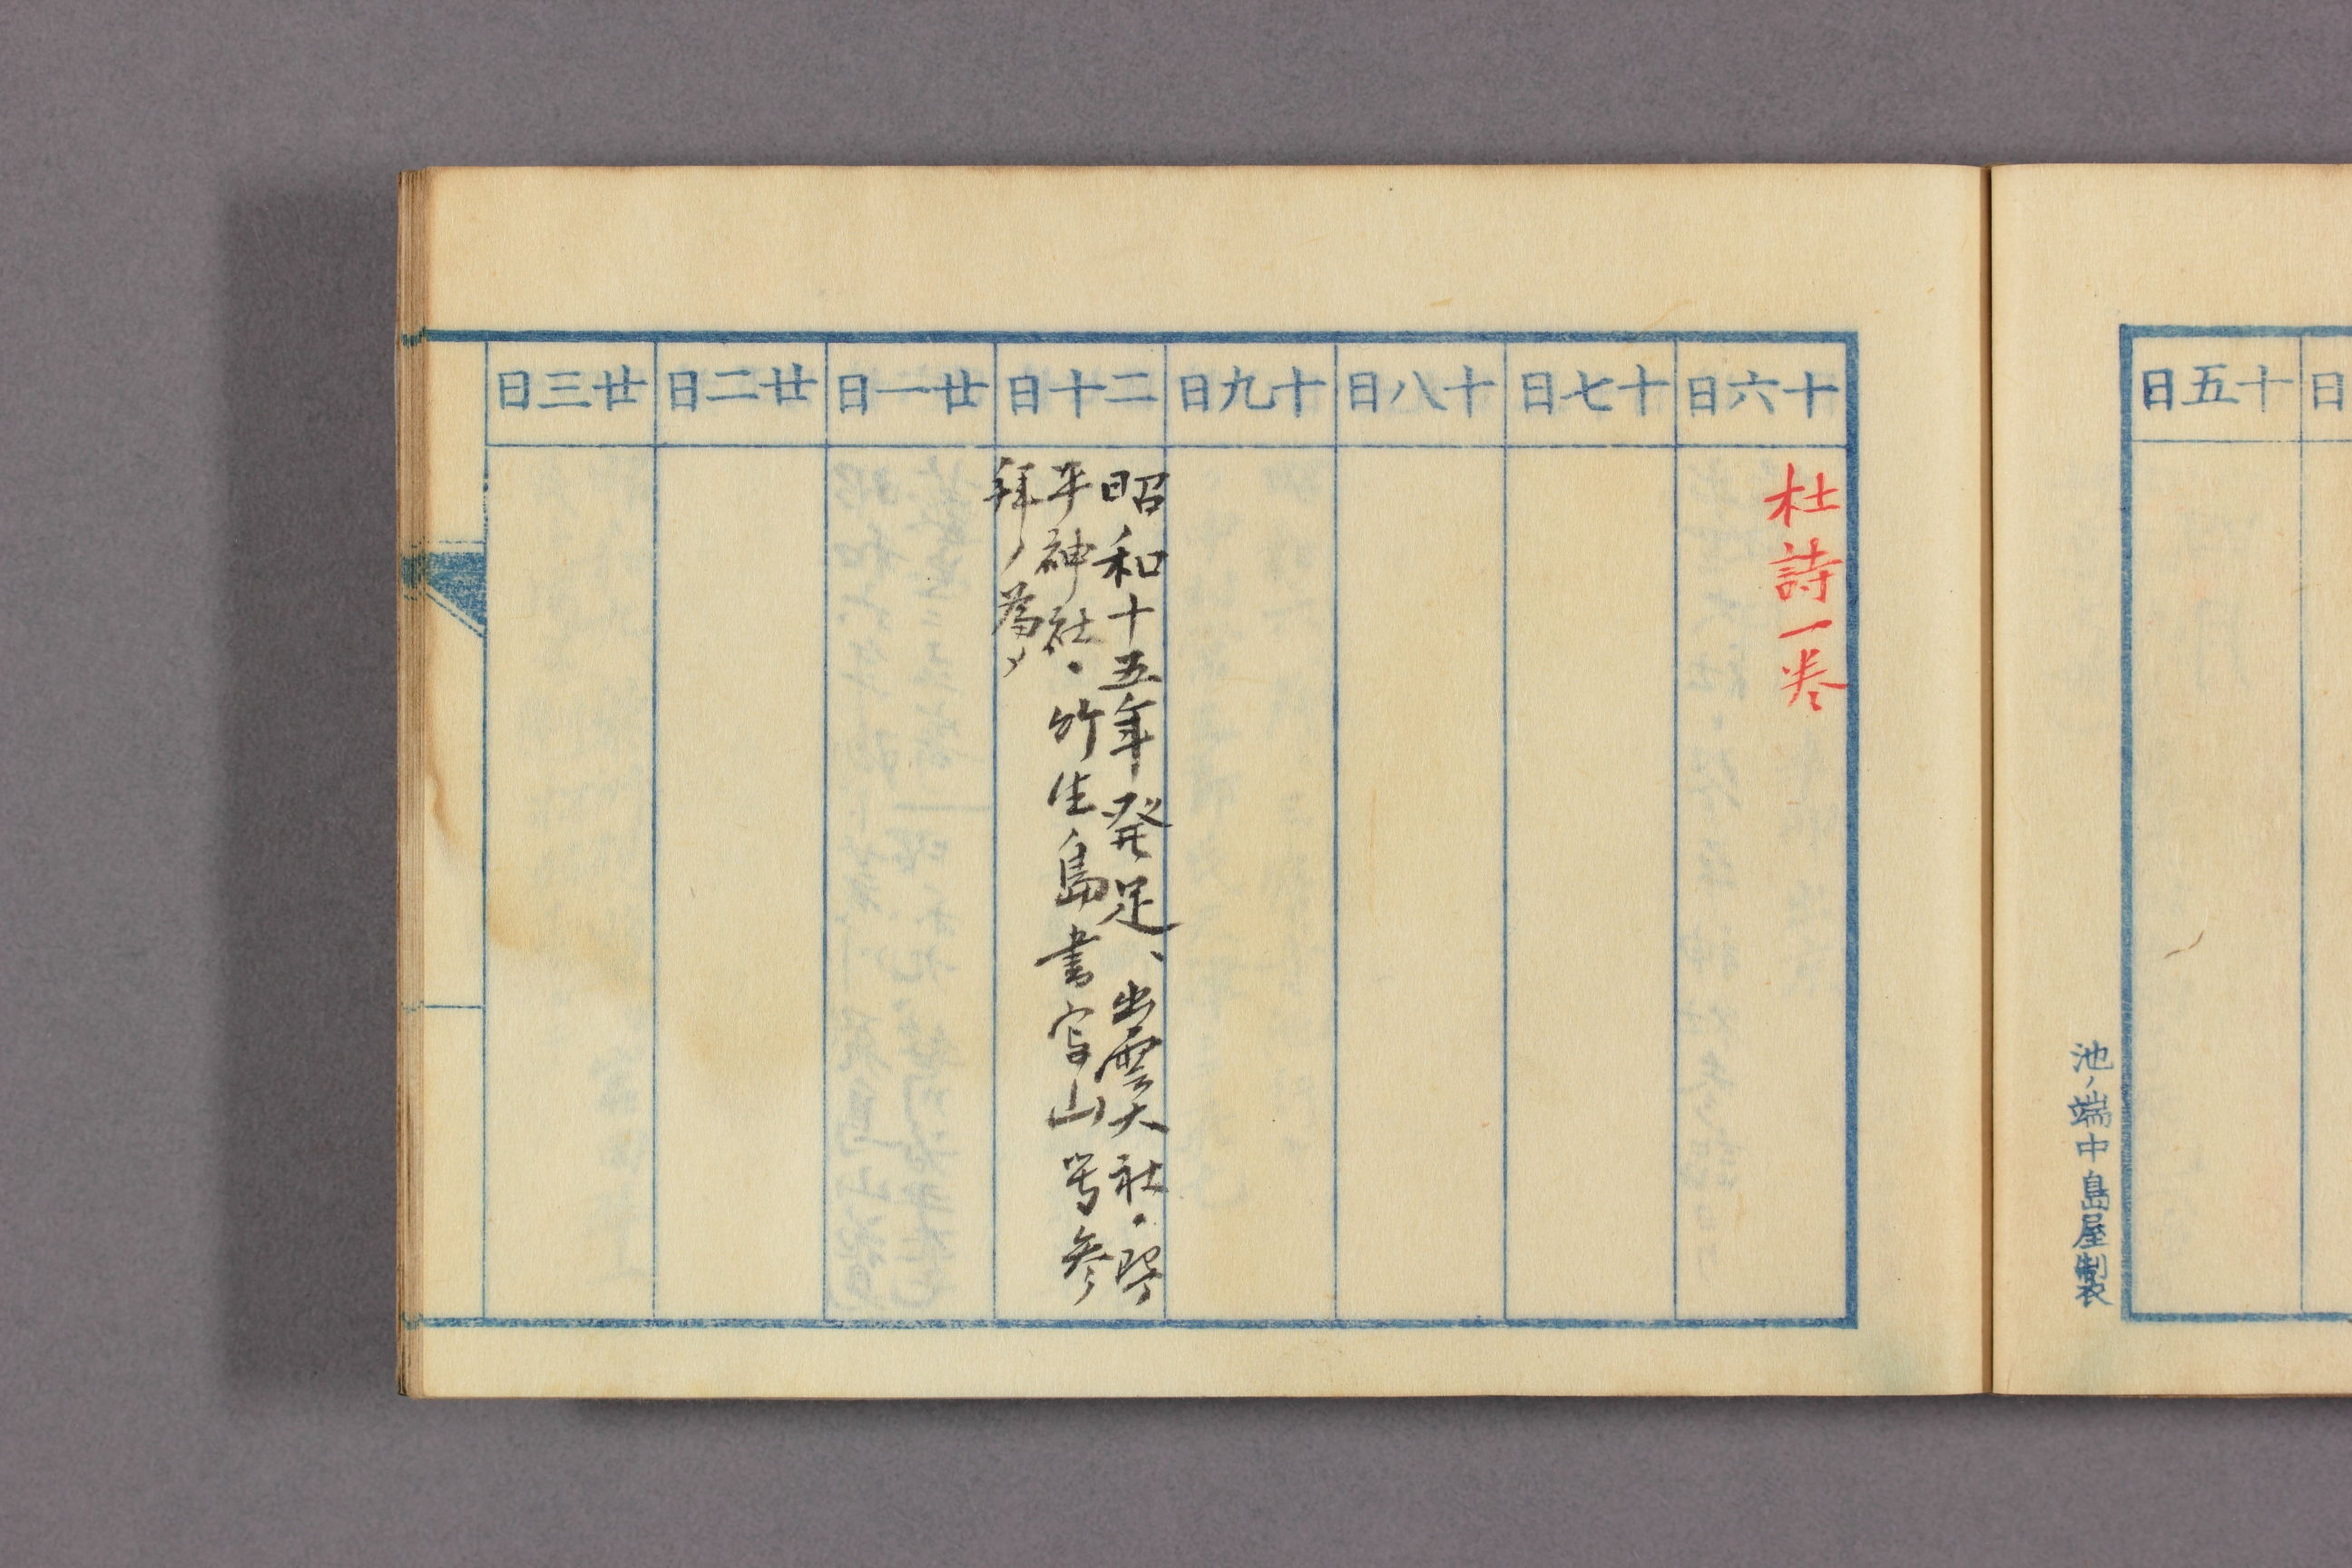 日
十五日
池ノ端中島屋製
十六日
杜詩一巻
十七日
十八日
十九日
二十日
昭和十五年発足、出雲大社・琴
平神社・竹生島書写山等参
拝ノ為メ
廿一日
廿二日
廿三日